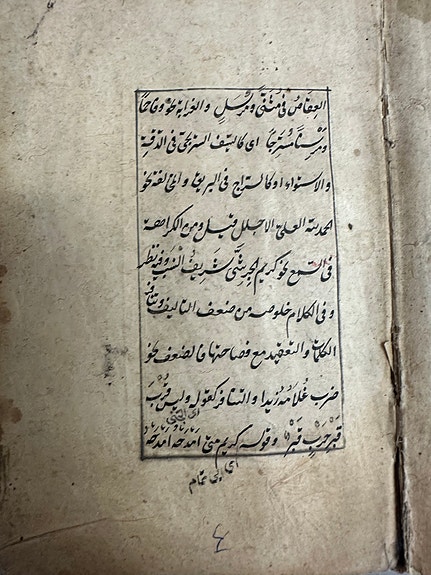 العقاص فی مثنی و مرسل والغرابة نحو وفاحما
ومرسنا مسرجا ای کالسیف السریجی فی الدقة
والاستواء او کالسراج فی البریق والمخالفة نحو
الحمد لله العلی الاجلل قیل ومن الکراهة
فی السمع نحو کریم الجرشی شریف النسب وفیه نظر
و فی الکلام خلوصه من ضعف التالیف وتنافر
الکلمات والتعقید مع فصاحتها فالضعف نحو
ضرب غلامه زیدا والتنافر کقوله ولیس قرب
قبر حرب قبر وقوله کریم متی امدحه امدحه
ای ابی تمام
٤